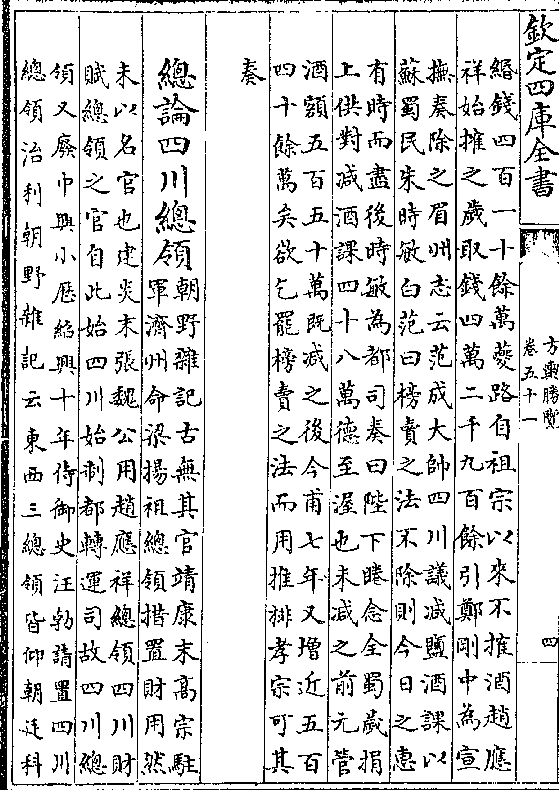 欽定四庫全書
方輿勝覽
卷五十一
四
緡錢四百一十餘萬夔路自祖宗以來不搉酒趙應
祥始搉之歲取錢四萬二千九百餘引鄭剛中為宣
撫奏除之眉州志云范成大帥四川議減鹽酒課以
蘇蜀民朱時敏白范曰榜賣之法不除則今日之惠
有時而盡後時敏為都司奏曰陛下睠念全蜀歲捐
上供對減酒課四十八萬德至渥也未減之前元管
酒額五百五十萬既減之後今甫七年又增近五百
四十餘萬矣欲乞罷榜賣之法而用推排孝宗可其
奏
總論四川總領
朝野雜記古無其官靖康末高宗駐
軍濟州命梁揚祖總領措置財用然
未以名官也建炎末張魏公用趙應祥總領四川財
賦總領之官自此始四川始制都轉運司故四川總
領又廢中興小歷紹興十年侍御史汪勃請置四川
總領治利朝野雜記云東西三總領皆仰朝廷科